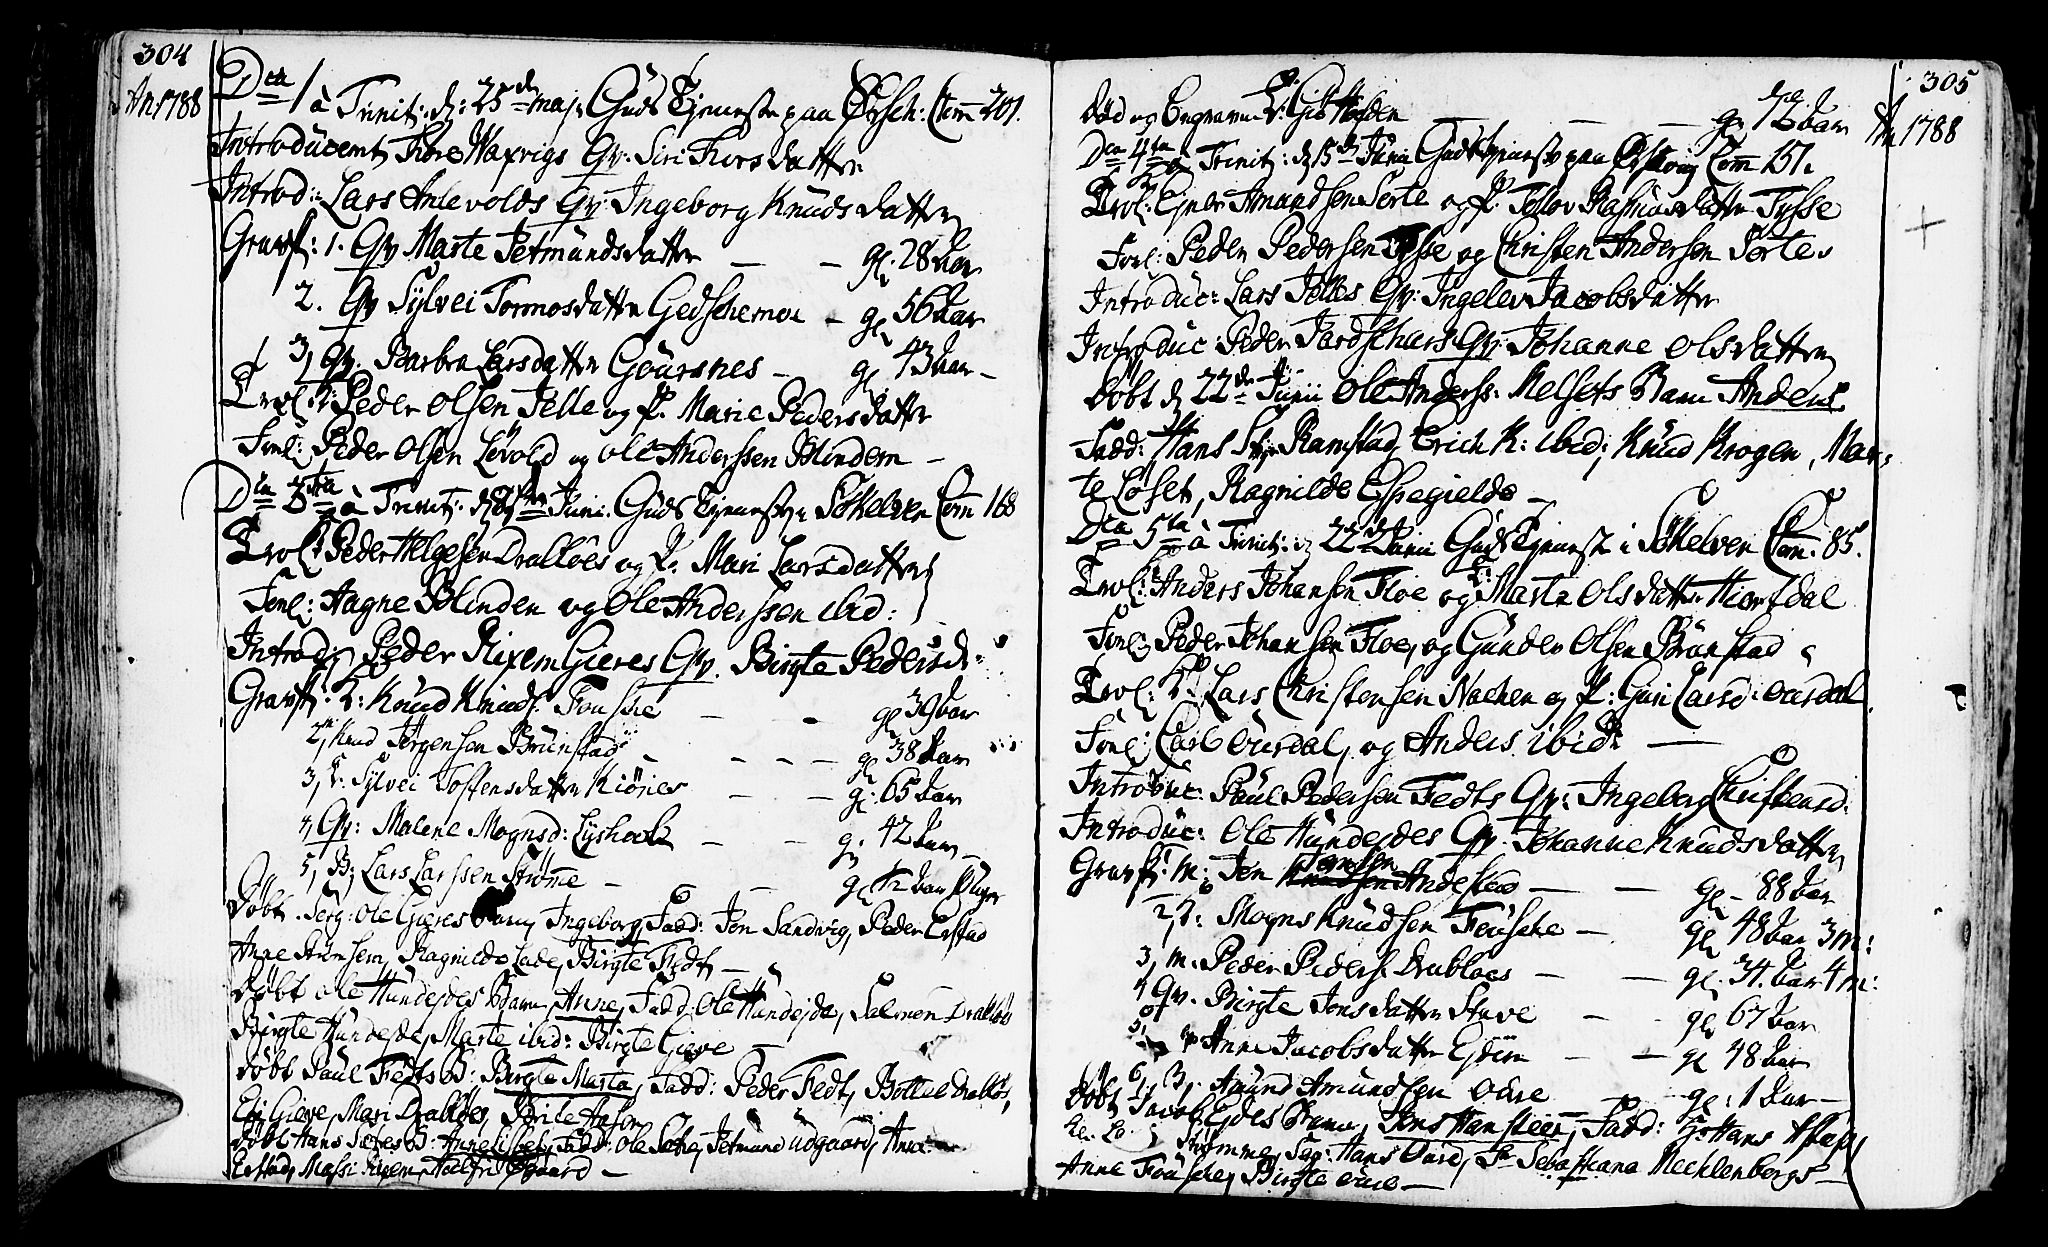 304
An 1788
Dca 1 à Trinit: d: 25de maj. Guds Tjeneste paa Ørsch: Com 201.
Introducent Thore Waxvigs Qv: Siri Thorsdatter
Introd: Lars Anlevolds Qv: Ingeborg Knudsdatter
Gravf: 1. Qv Marte Jetmundsdatter — — gl. 28 Aar
2. Qv Sylvei Tormosdatter — gl 56 Aar
3, Qv. Barbra Larsdatter Goursnes — gl 43 Aar —
Trol: Peder Olsen Jelle og P. Marie Pedersdatter
Fonl: Peder Olsen Løvold og Ole Anderssen Blindem —
Dca à Trinit: Juni. Guds Tjeneste Søkelven Com 168
Trol: Peder Helgesen Drabløes og P. Mari Larsdatter
Fonl: Aagne Blinden og Ole Anderssen ibid:
Introd: Peder Rixem Gieres Qv. Birgte Pedersd:
Gravf: Knud Knuds. Fousche — — gl 39 Aar
2, Knud Jørgensen Brunstad — — — gl 38 Aar
3, Sylvei Tostensdatter — — gl: 65 Aar
4, Qv: Malene Mognsd: Lyshoel — — gl. 42 Aar —
5, B: Lars Larssen Strømme — — gl
Døbt. Ole Gieres Barn, Ingeborg, Fadd: Jon Sandvig, Peder Erstad
Anne Strømsem, Ragnilde Lade, Birgte Fedt —
Døbt Ole Hundejdes Barn, Anne, Fadd: Ole Hundejde, Salomon Drabløs
Birgte Hundejde, Marte ibid: Birgte Gieve —
Døbt Paul Fedts B: Birgte Marta, Fadd: Peder Fedt, Bottel Drabløs,
Gieve, Mari Drabløs,
Døbt Hans B: Annelisbet, Fadd: Ole Jetmund Udgaard, Anne
Erstad, Massi
305
An 1788
død og Begraven — — — gl 72 Aar
Dca 4ta à Trinit: d 15de Junii Guds Tjeneste paa Ørschvig Com 151.
Trol. Ejner Amundsen Sorte og P. Rasmusdatter Tysse
Fonl: Peder Pedersen Tysse og Christen Andersen Sorte
Introduc: Lars Jelles Qv: Ingelev Jacobsdatter
Introduc: Peder Qv: Johanne Olsdatter
Døbt d 22de Junii Ole Anderss: Melsets Barn Anders
Fadd: Hans Ramstad, Erich K: ibid; Knud Krogen, Mar-
te Løset, Ragnilde Espegielde —
Dca 5ta à Trinit: d 22de Junii Guds Tjeneste i Søkelven Com. 85.
Trol: Anders Johansen Floe og Marta Olsdatter Hiortdal
Fonl: Peder Johansen Floe, og Gunder Olsen Brunstad
Trol: Lars Christensen Nachen og P: Guri Larsd: Ourdal
Fonl: Carl Ourdal, og Anders ibid: —
Introduc: Paul Pedersen Fedts Qv: Ingeborg Christensd:
Introduc: Ole Hundejdes Qv. Johanne Knudsdatter
Gravf: M: Jon Jonsen Andestad — — gl — 88 Aar
2, Mogns Knudsen Fousche — gl 48 Aar 3 m:
3, M. Peder Peders. Drabloes — — gl. 34. Aar 4 m:
4 Qv. Birgte Jonsdatter Stave — — gl 67 Aar
5, Anne Jacobsdatter — — gl 48 Aar
6, B: Amund Amundsen Oure — gl: 1 Aar —
Døbt Jacob Ejdes Barn, Fadd: Hans
Strømme, Hans Oure, Sebastiana Mecklenbergs —
Anne Fousche, Birgte Oure —